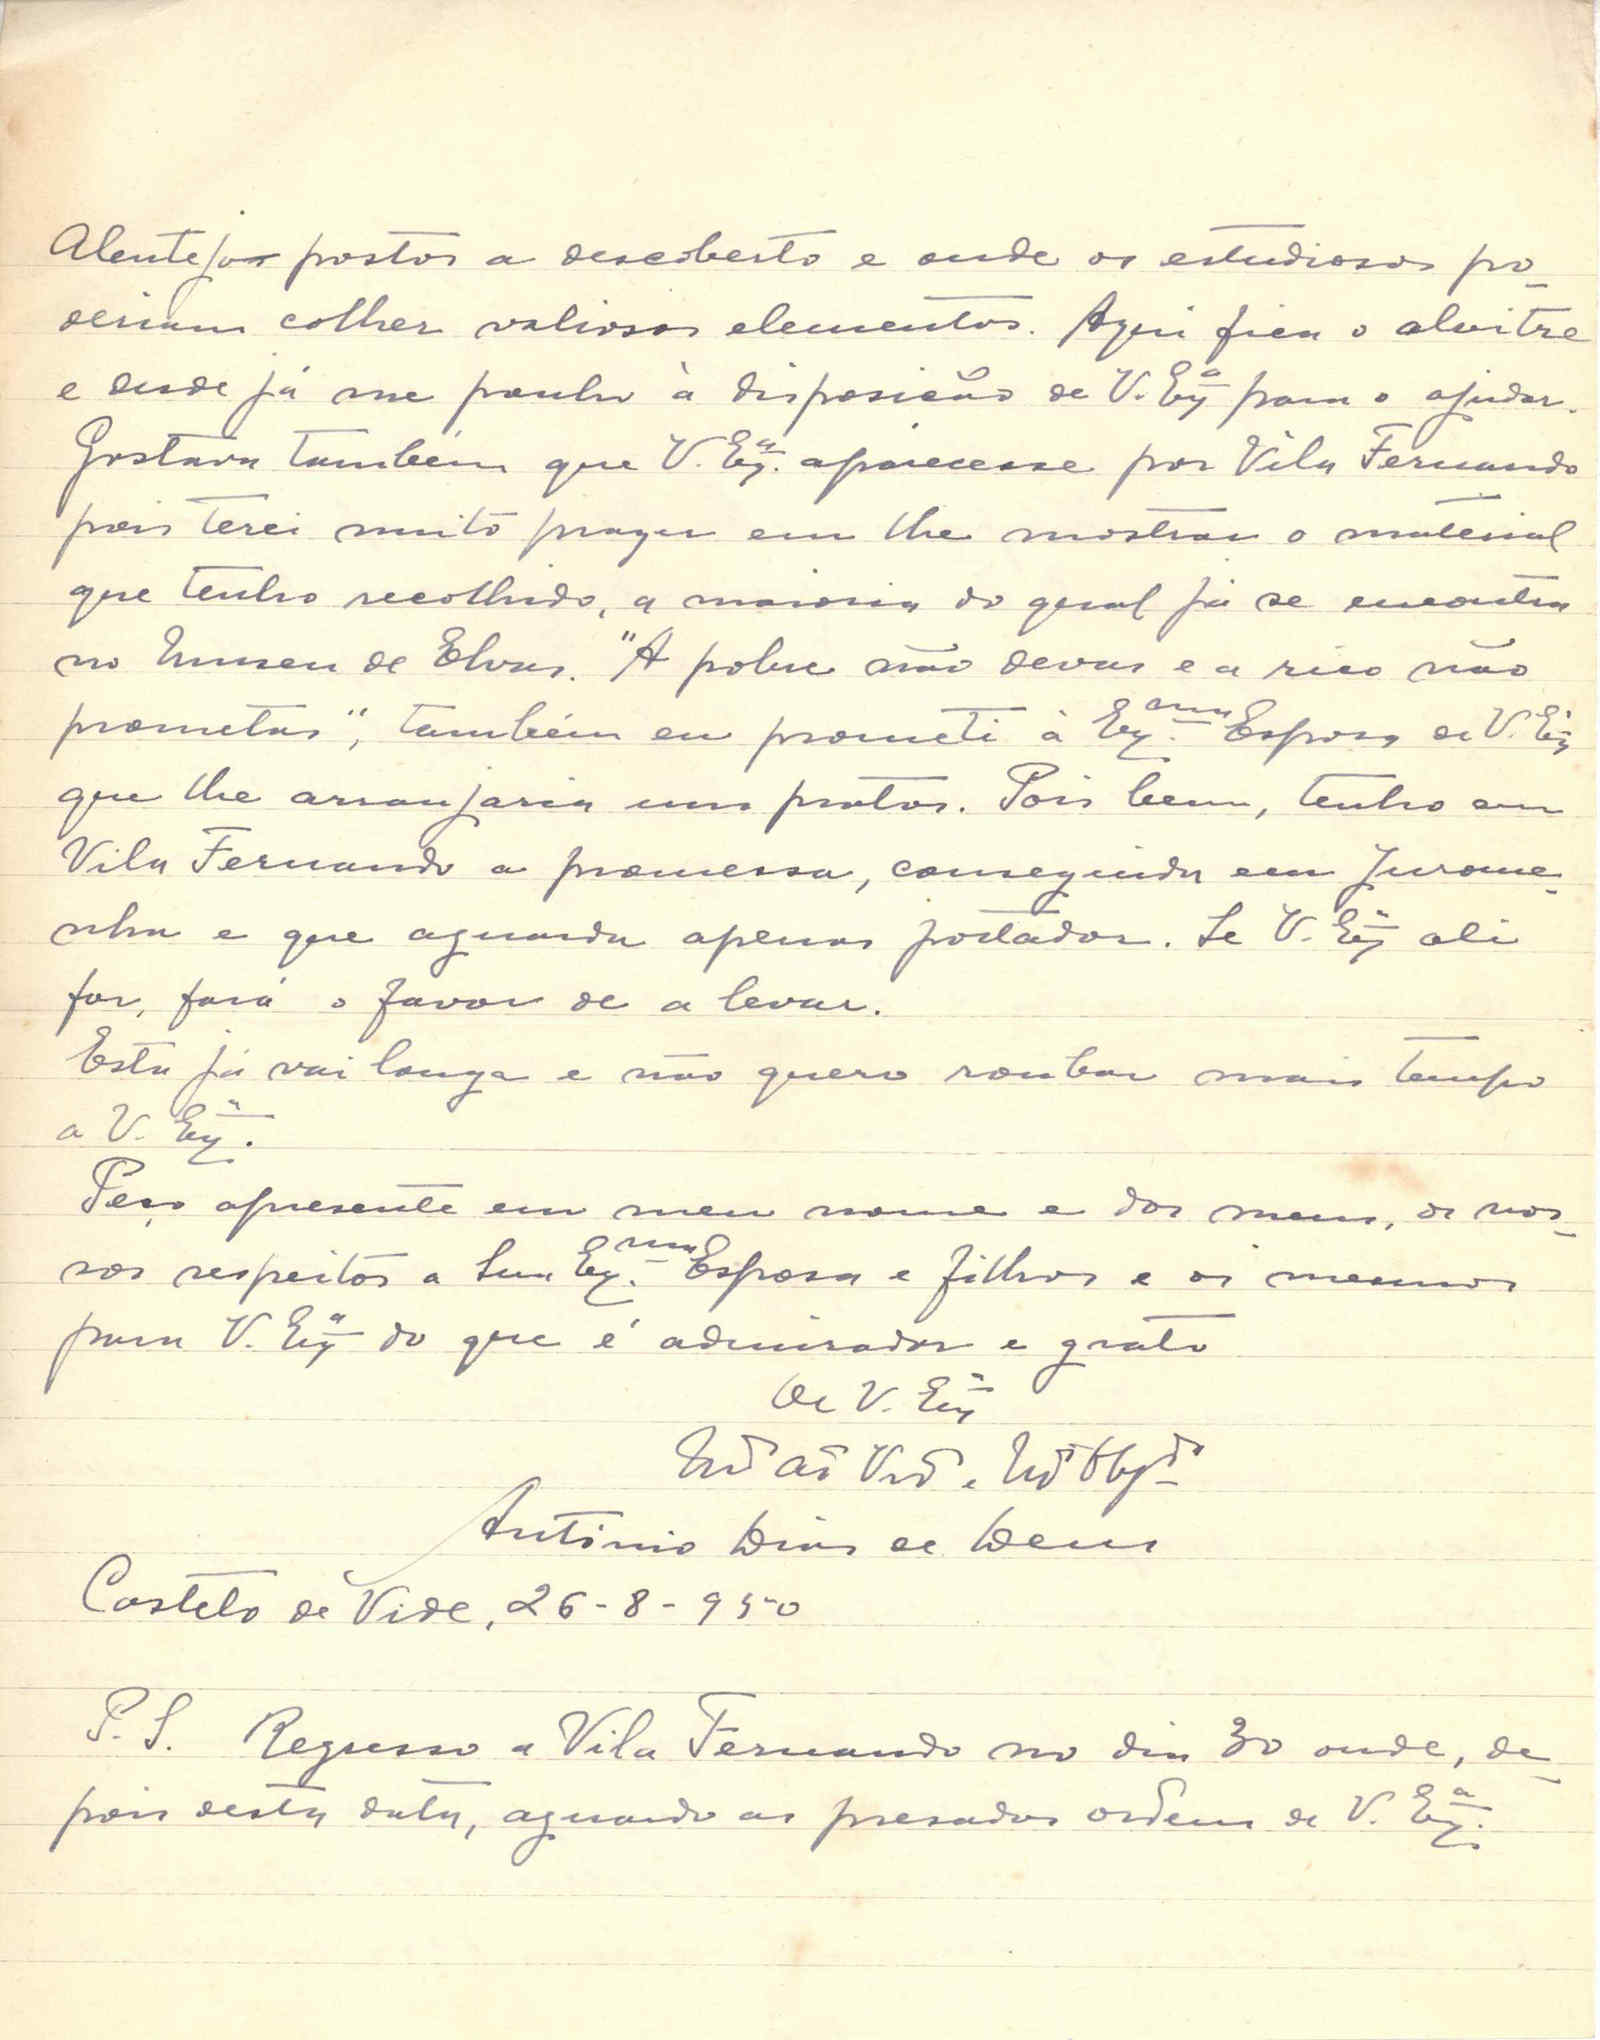 Alentejo postos a descoberto e onde os estudiosos po-
deriam colher valiosos elementos. Aqui fica o alvitre
e desde já me ponho à disposição de V. Exª para o ajudar.
Gostava também que V. Exª. aparecesse por Vila Fernando
pois terei muito prazer em lhe mostrar o material
que tenho recolhido, a maioria do qual já se encontra
no Museu de Elvas. "A pobre não devas e a rico não
prometas", também eu prometi à Ex.ma Esposa de V. Exª
que lhe arranjaria uns pratos. Pois bem, tenho em
Vila Fernando a promessa, conseguida em Jurome-
nha e que aguarda apenas portador. Se V. Exª ali
for, fará o favor de a levar.
Esta já vai longa e não quero roubar mais tempo
a V. Exª.
Peço apresente em meu nome e dos meus, os nos-
sos respeitos a Sua Ex.ma Esposa e filhos e os mesmos
para V. Exª do que é admirador e grato
De V. Exª
Mto Ato Vrо e Mto Obgdo
António Dias de Deus
Castelo de Vide, 26-8-950
P. S. Regresso a Vila Fernando no dia 30 onde, de-
pois desta data, aguardo as presadas ordens de V. Exª.